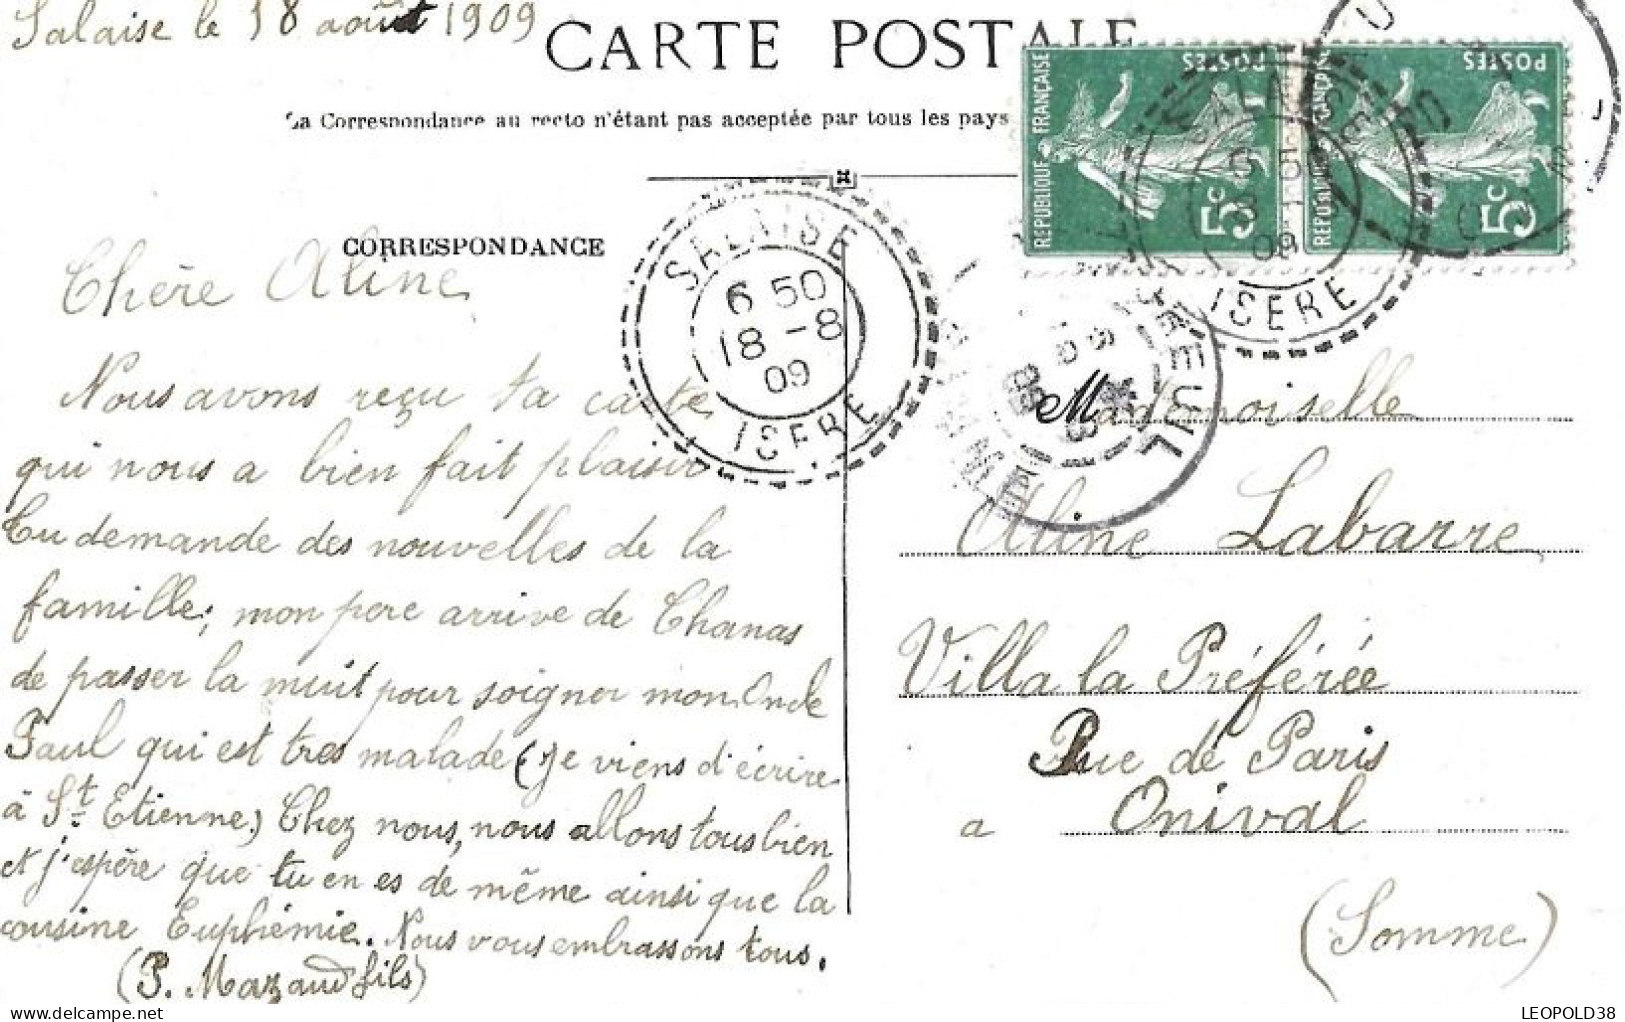 Salaise le 18 août 1909
CARTE POSTALE
La Correspondance au recto n'étant pas acceptée par tous les pays
CORRESPONDANCE
Chère Aline
Nous avons reçu ta carte
qui nous a bien fait plaisir
Tu demande des nouvelles de la
famille; mon pere arrive de Chanas
de passer la nuit pour soigner mon Oncle
Paul qui est tres malade (je viens d'écrire
à St. Etienne) Chez nous, nous allons tous bien
et j'espère que tu en es de même ainsi que la
cousine Euphémie. Nous vous embrassons tous.
(P. Mazaud fils)
SALAISE
6 50
18 - 8
09
ISERE
REPUBLIQUE FRANÇAISE
POSTES
5c
REPUBLIQUE FRANÇAISE
POSTES
5c
SALAISE
09
ISERE
Mademoiselle
Aline Labarre
Villa la Préférée
Rue de Paris
a Onival
(Somme)
LEOPOLD38